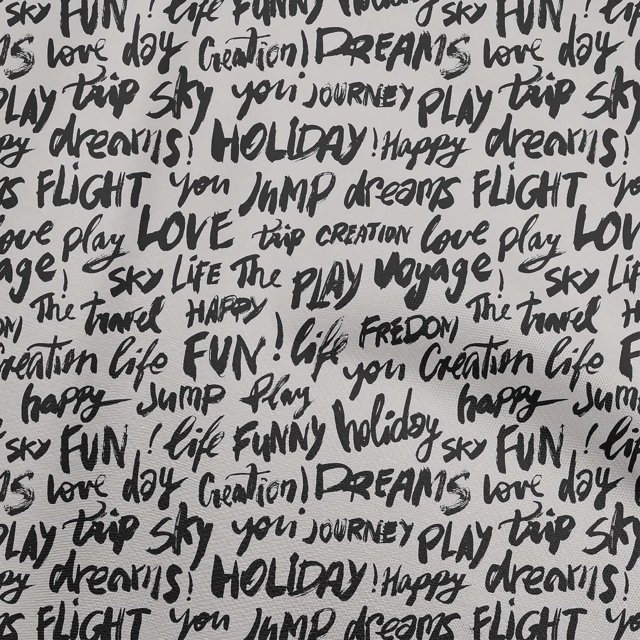 sky FUN ! life FUNNY holiday sky FUN ! life
MS love day Creation! DREAMS love day
PLAY trip sky you! JOURNEY PLAY trip sky
ppy dreams! HOLIDAY! Happy dreams! H
ms FLIGHT you JUMP dreams FLIGHT you
love play LOVE trip CREATION love play LOV
age! sky LIFE The PLAY voyage! sky LIF
OM The travel HAPPY FREDOM The travel
Creation life FUN! life you Creation life F
happy Jump play happy Jump
sky FUN ! life FUNNY holiday sky FUN ! life
MS love day Creation! DREAMS love day
PLAY trip sky you! JOURNEY PLAY trip sky
ppy dreams! HOLIDAY! Happy dreams! H
ms FLIGHT you JUMP dreams FLIGHT you